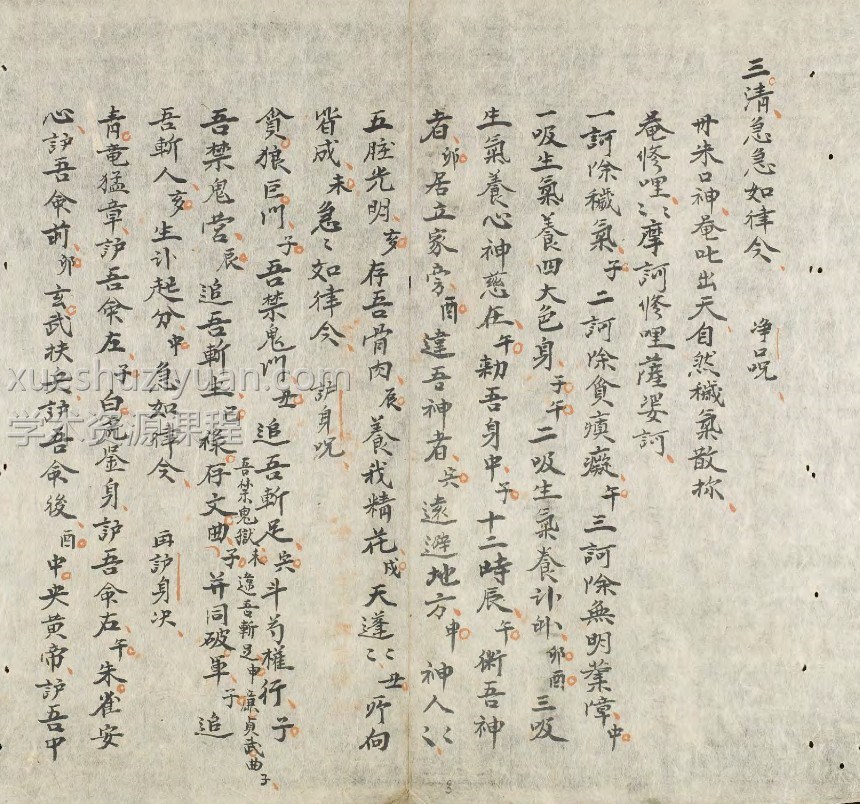 三清急急如律令　净口呪
丹朱口神奄吒出天自然穢氣散㧱
奄修哩〻摩訶修哩薩婆訶
一訶除穢氣子二訶除貪瘨癡午三訶除無明業障申
一吸生氣養四大色身子午二吸生氣養卟卧卯酉三吸
生氣養心神慈在午勅吾身中子十二時辰午衛吾神
者卯居立家旁酉違吾神者矣遠避地方申神人〻
五脏光明亥存吾骨肉辰養我精花戍天蓬〻丑所向
皆成未急〻如律令　護身呪
貪狼巨門子吾禁鬼門丑追吾斬足矣斗芍權行子
吾禁鬼獄未追吾斬足申廉貞武曲子
吾禁鬼营辰追吾斬生巳禄存文曲子并同破軍子追
吾斬人亥生卟起分申急如律令　再护身决
青竜猛章护吾命左子白虎鉴身护吾命右午朱雀安
心护吾命前卯玄武扶兵护吾命後酉中央黄帝护吾中
3
xueshuziyuan.com
学术资源课程